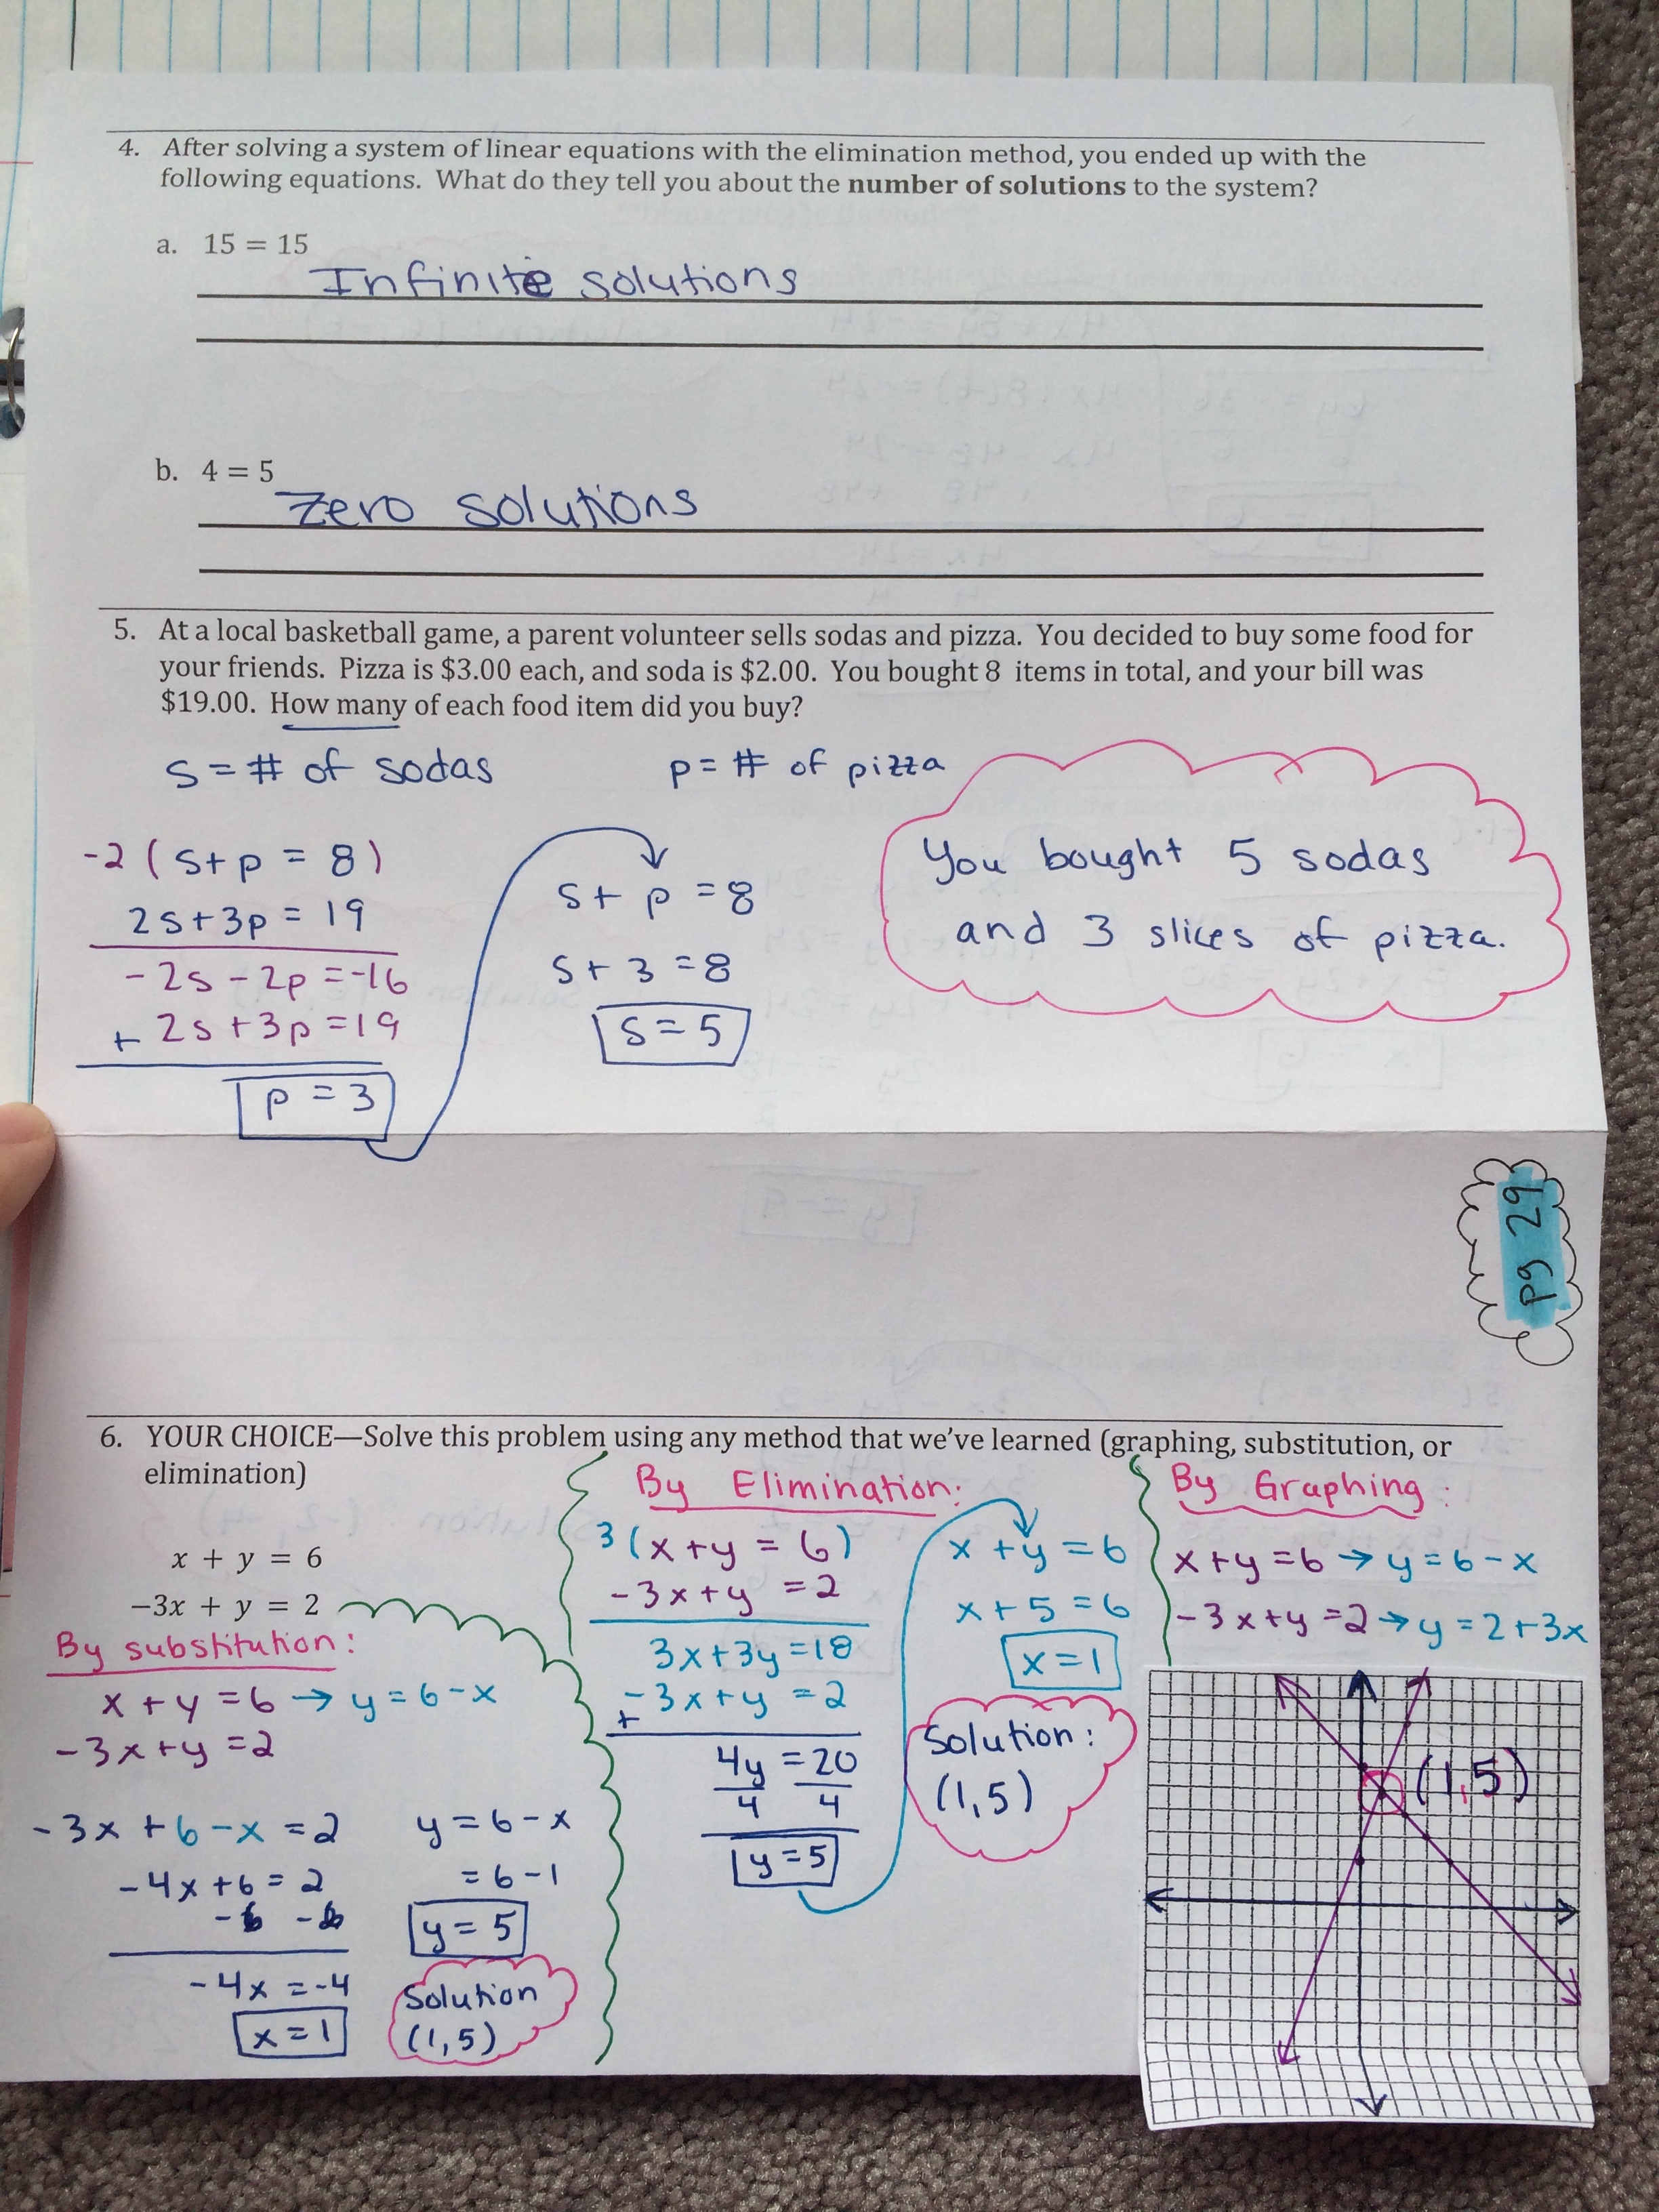 4. After solving a system of linear equations with the elimination method, you ended up with the
following equations. What do they tell you about the number of solutions to the system?
a. 15 = 15
Infinite solutions
b. 4 = 5
Zero solutions
5. At a local basketball game, a parent volunteer sells sodas and pizza. You decided to buy some food for
your friends. Pizza is $3.00 each, and soda is $2.00. You bought 8 items in total, and your bill was
$19.00. How many of each food item did you buy?
s = # of sodas
p = # of pizza
-2(s+p = 8)
2s+3p = 19
-2s-2p=-16
+ 2s+3p=19
p = 3
s+p=8
s+3=8
s=5
You bought 5 sodas
and 3 slices of pizza.
pg 29
6. YOUR CHOICE—Solve this problem using any method that we've learned (graphing, substitution, or
elimination)
x + y = 6
-3x + y = 2
By substitution:
x+y=6→y=6-x
-3x+y=2
-3x+6-x=2
-4x+6=2
-6 -6
-4x=-4
x=1
y=6-x
=6-1
y=5
Solution
(1,5)
By Elimination:
3(x+y=6)
-3x+y=2
3x+3y=18
+ -3x+y=2
4y=20
4 4
y=5
x+y=6
x+5=6
x=1
Solution:
(1,5)
By Graphing:
x+y=6→y=6-x
-3x+y=2→y=2+3x
(1,5)